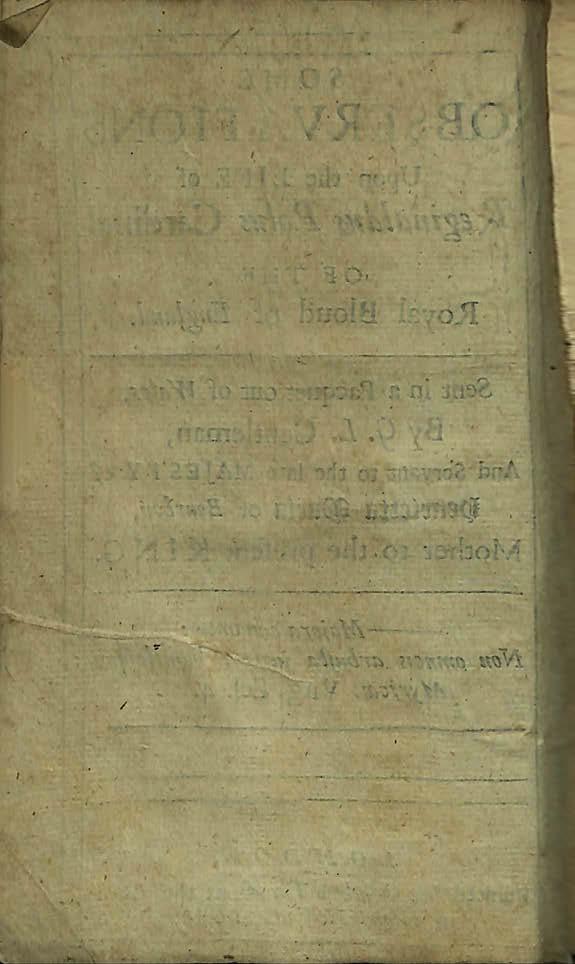 SOME
OBSERVATIONS
Upon the LIFE of
Reginaldus Polus Cardinal
OF THE
Royal Bloud of England.
Sent in a Pacquet out of Wales,
By G. L. Gentleman,
And Servant to the late MAJESTY of
Henrietta Maria of Bourbon,
Mother to the present KING.
Majora canamus:
Non omneis arbusta juvant
Myricæ. Virg. Ecl. 4.
LONDON,
Printed